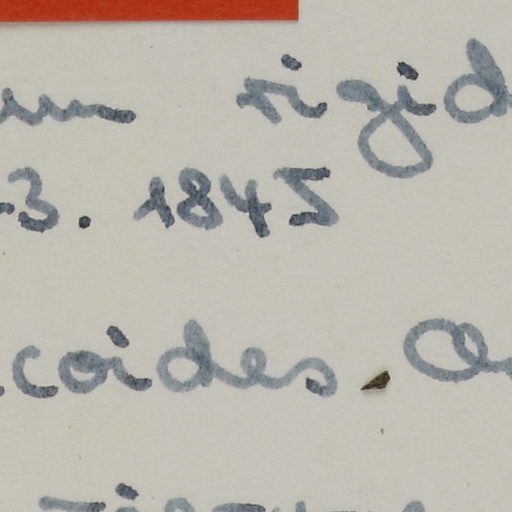 um rigid
3. 1845
coides.